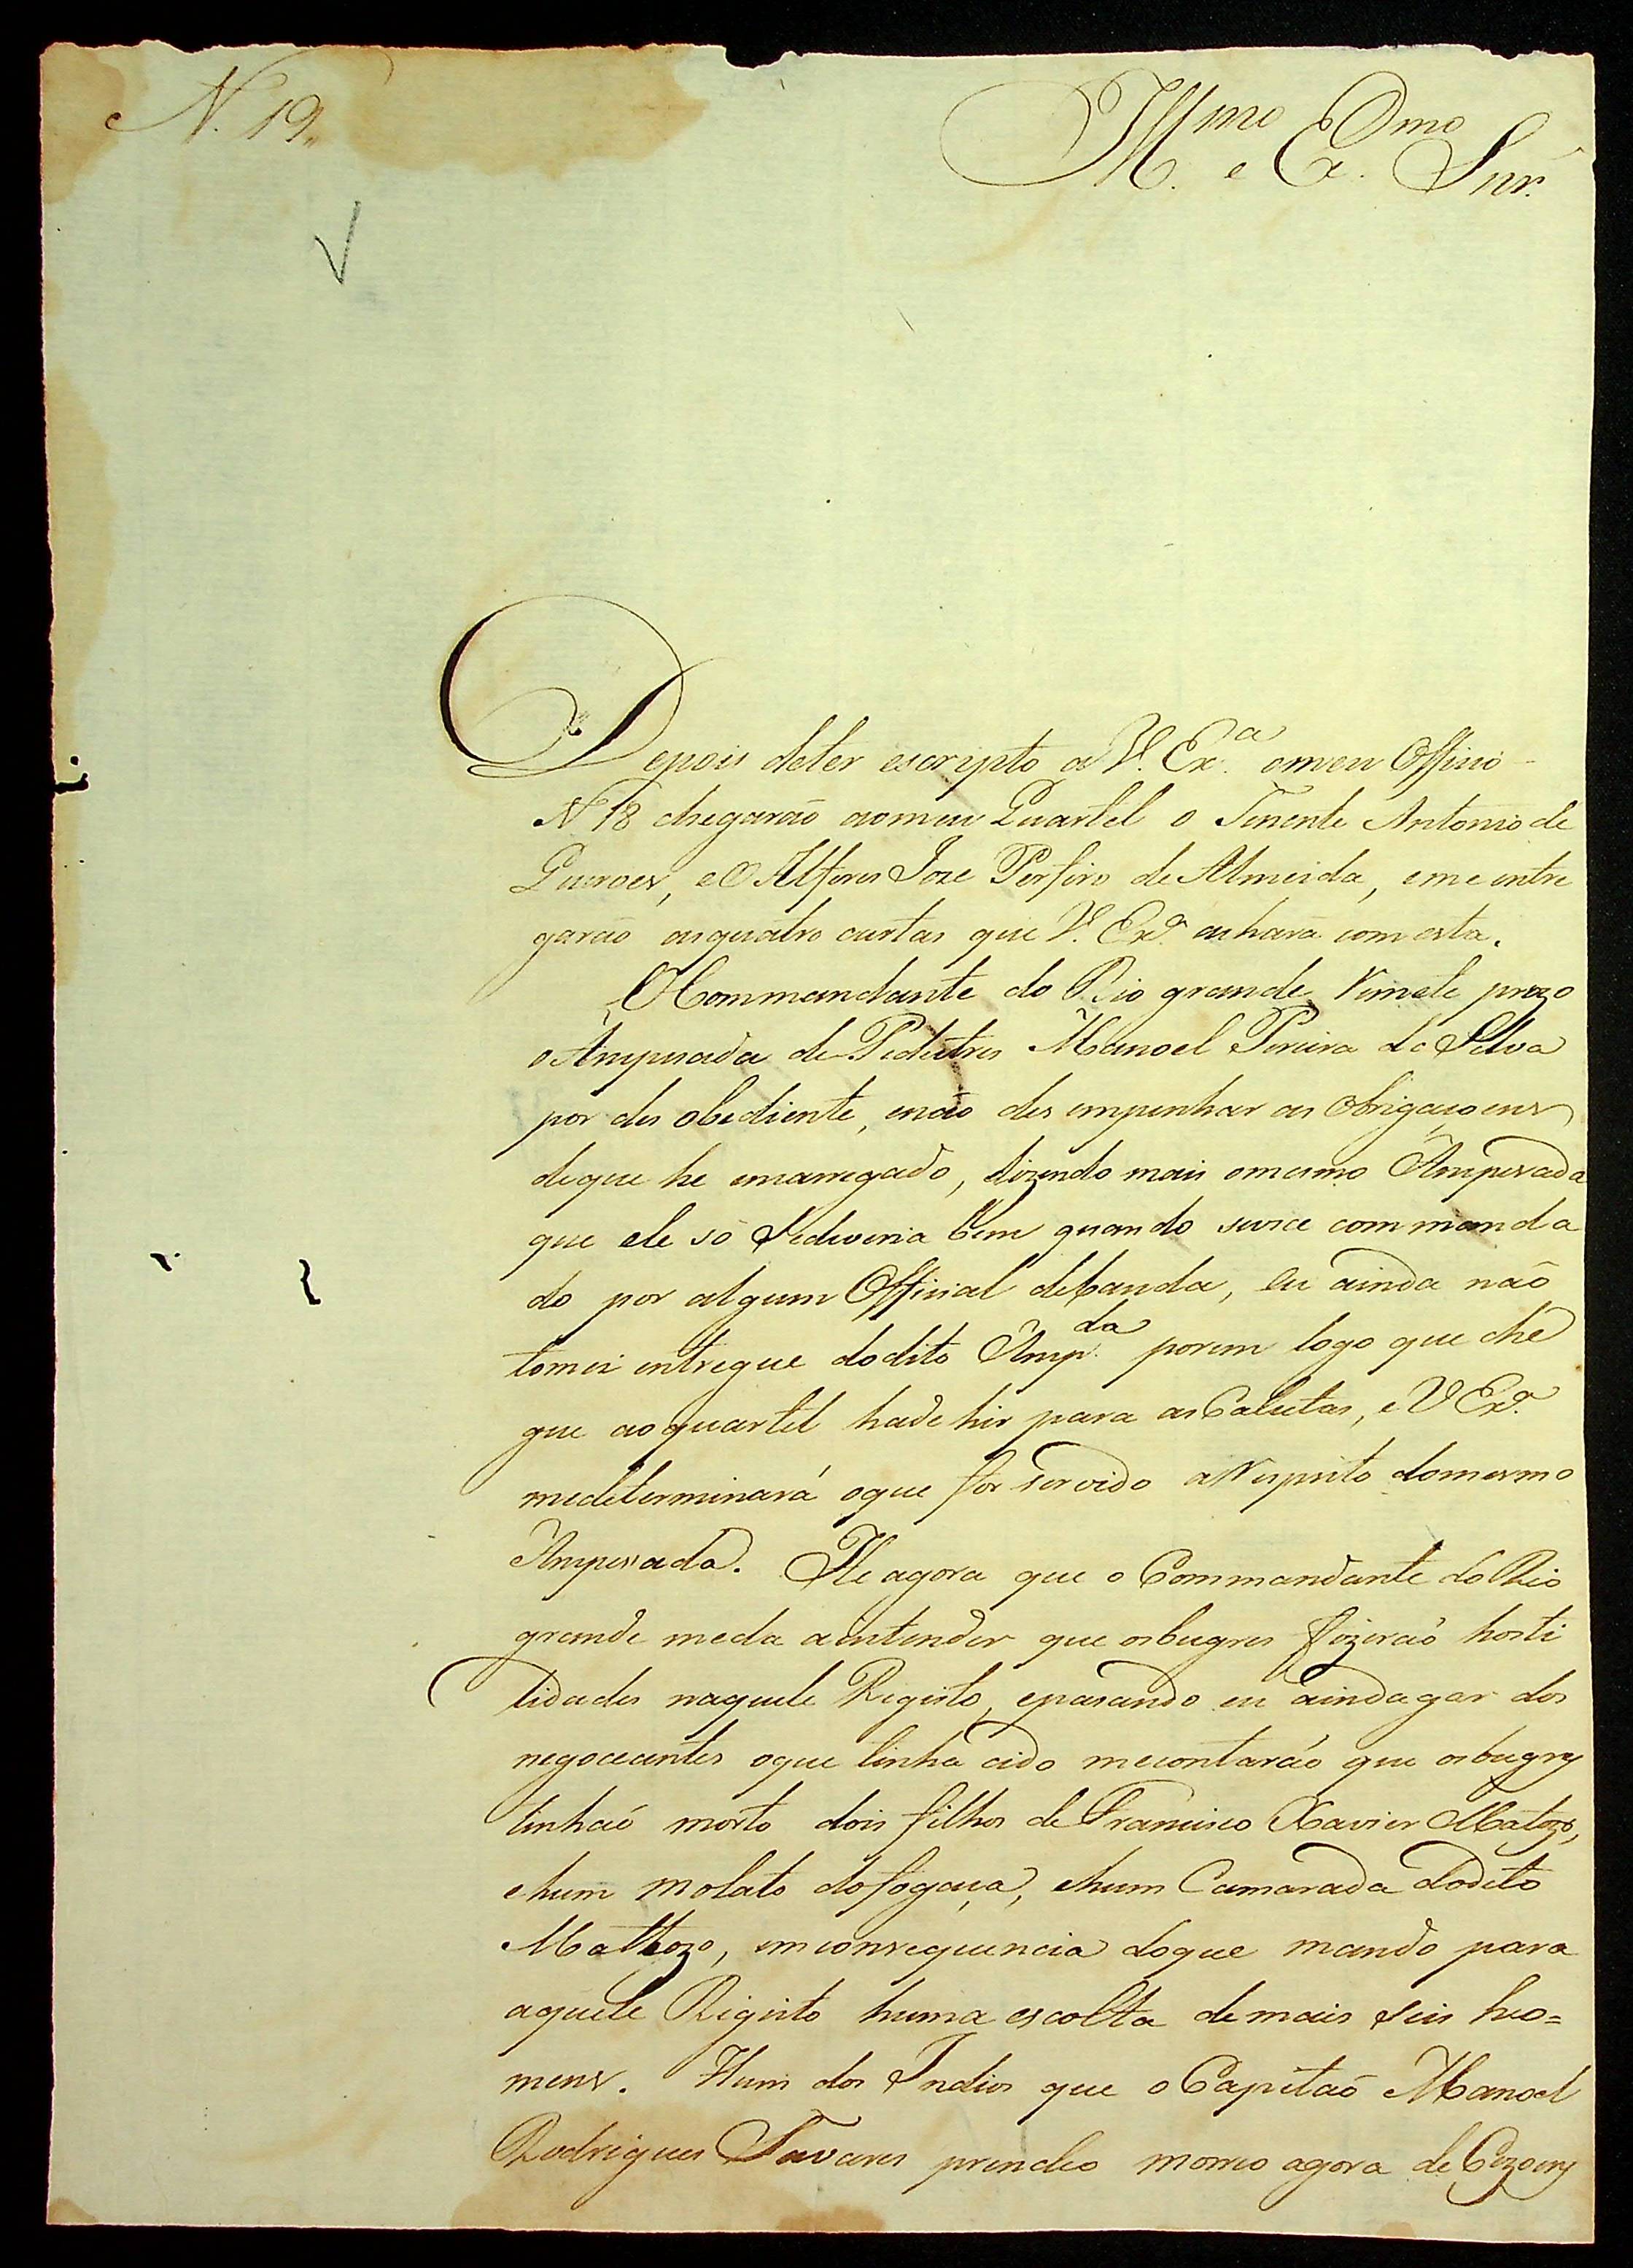 N. 19,,
Ill.mo e Ex.mo Snr.
Depois deter escripto a V. Ex.a omeu Officio
N 18 chegaraõ aomeu Quartel o Tenente Antonio de
Queiroes, eO Alferes Joze Porfirio de Almeida, eme entre
garaõ asquatro cartas que V. Ex.a achará com esta.
OCommandante do Rio grande Remete prezo
oAnspesada de Pedestres Manoel Pereira da Silva
por des obediente, enaõ des empenhar as Obrigaçoens
deque he emcarregado, dizendo mais omesmo Anspesada
que ele só Sedeveria bem quando surce commanda
do por algum Official debanda, eu ainda naõ
tomei entregue dodito Ansp.da porem logo que che
gue aoquartel hade hir para asCalcetas, e V Ex.a
medeterminará oque for servido aRespeito domesmo
Anspesada. He agora que o Commandante do Rio
grande meda aintender que osbugres fizeraõ hosti
lidades naquele Registo, epasando eu aindagar dos
negoceantes oque tinha cido mecontaraõ que osbugres
tinhaõ morto dois filhos de Francisco Xavier Matozo,
ehum molato dofogaça, ehum Camarada dodito
Mattozo, emconsequencia doque mando para
aquele Registo huma escolta demais seis ho=
mens. Hum dos Indios que o Capitaõ Manoel
Rodrigues Tavares prendeo morreo agora de Cezoens